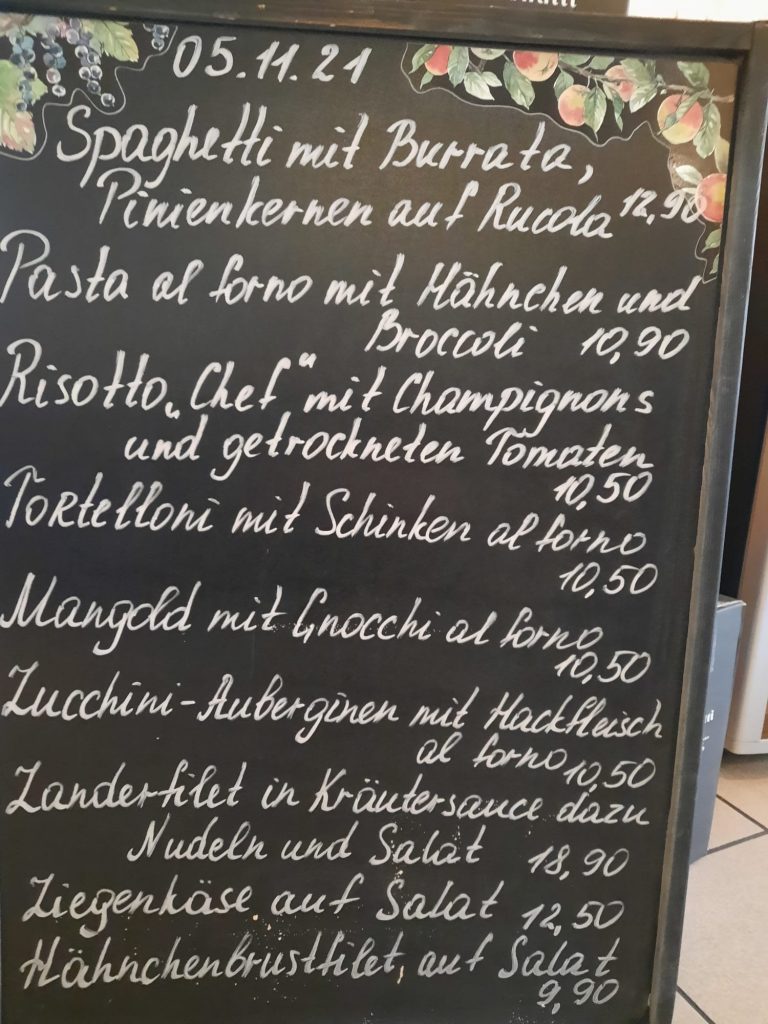 05.11.21
Spaghetti mit Burrata,
Pinienkernen auf Rucola 12,90
Pasta al forno mit Hähnchen und
Broccoli 10,90
Risotto „Chef“ mit Champignons
und getrockneten Tomaten
10,50
Tortelloni mit Schinken al forno
10,50
Mangold mit Gnocchi al forno
10,50
Zucchini-Auberginen mit Hackfleisch
al forno 10,50
Zanderfilet in Kräutersauce dazu
Nudeln und Salat 18,90
Ziegenkäse auf Salat 12,50
Hähnchenbrustfilet auf Salat
9,90